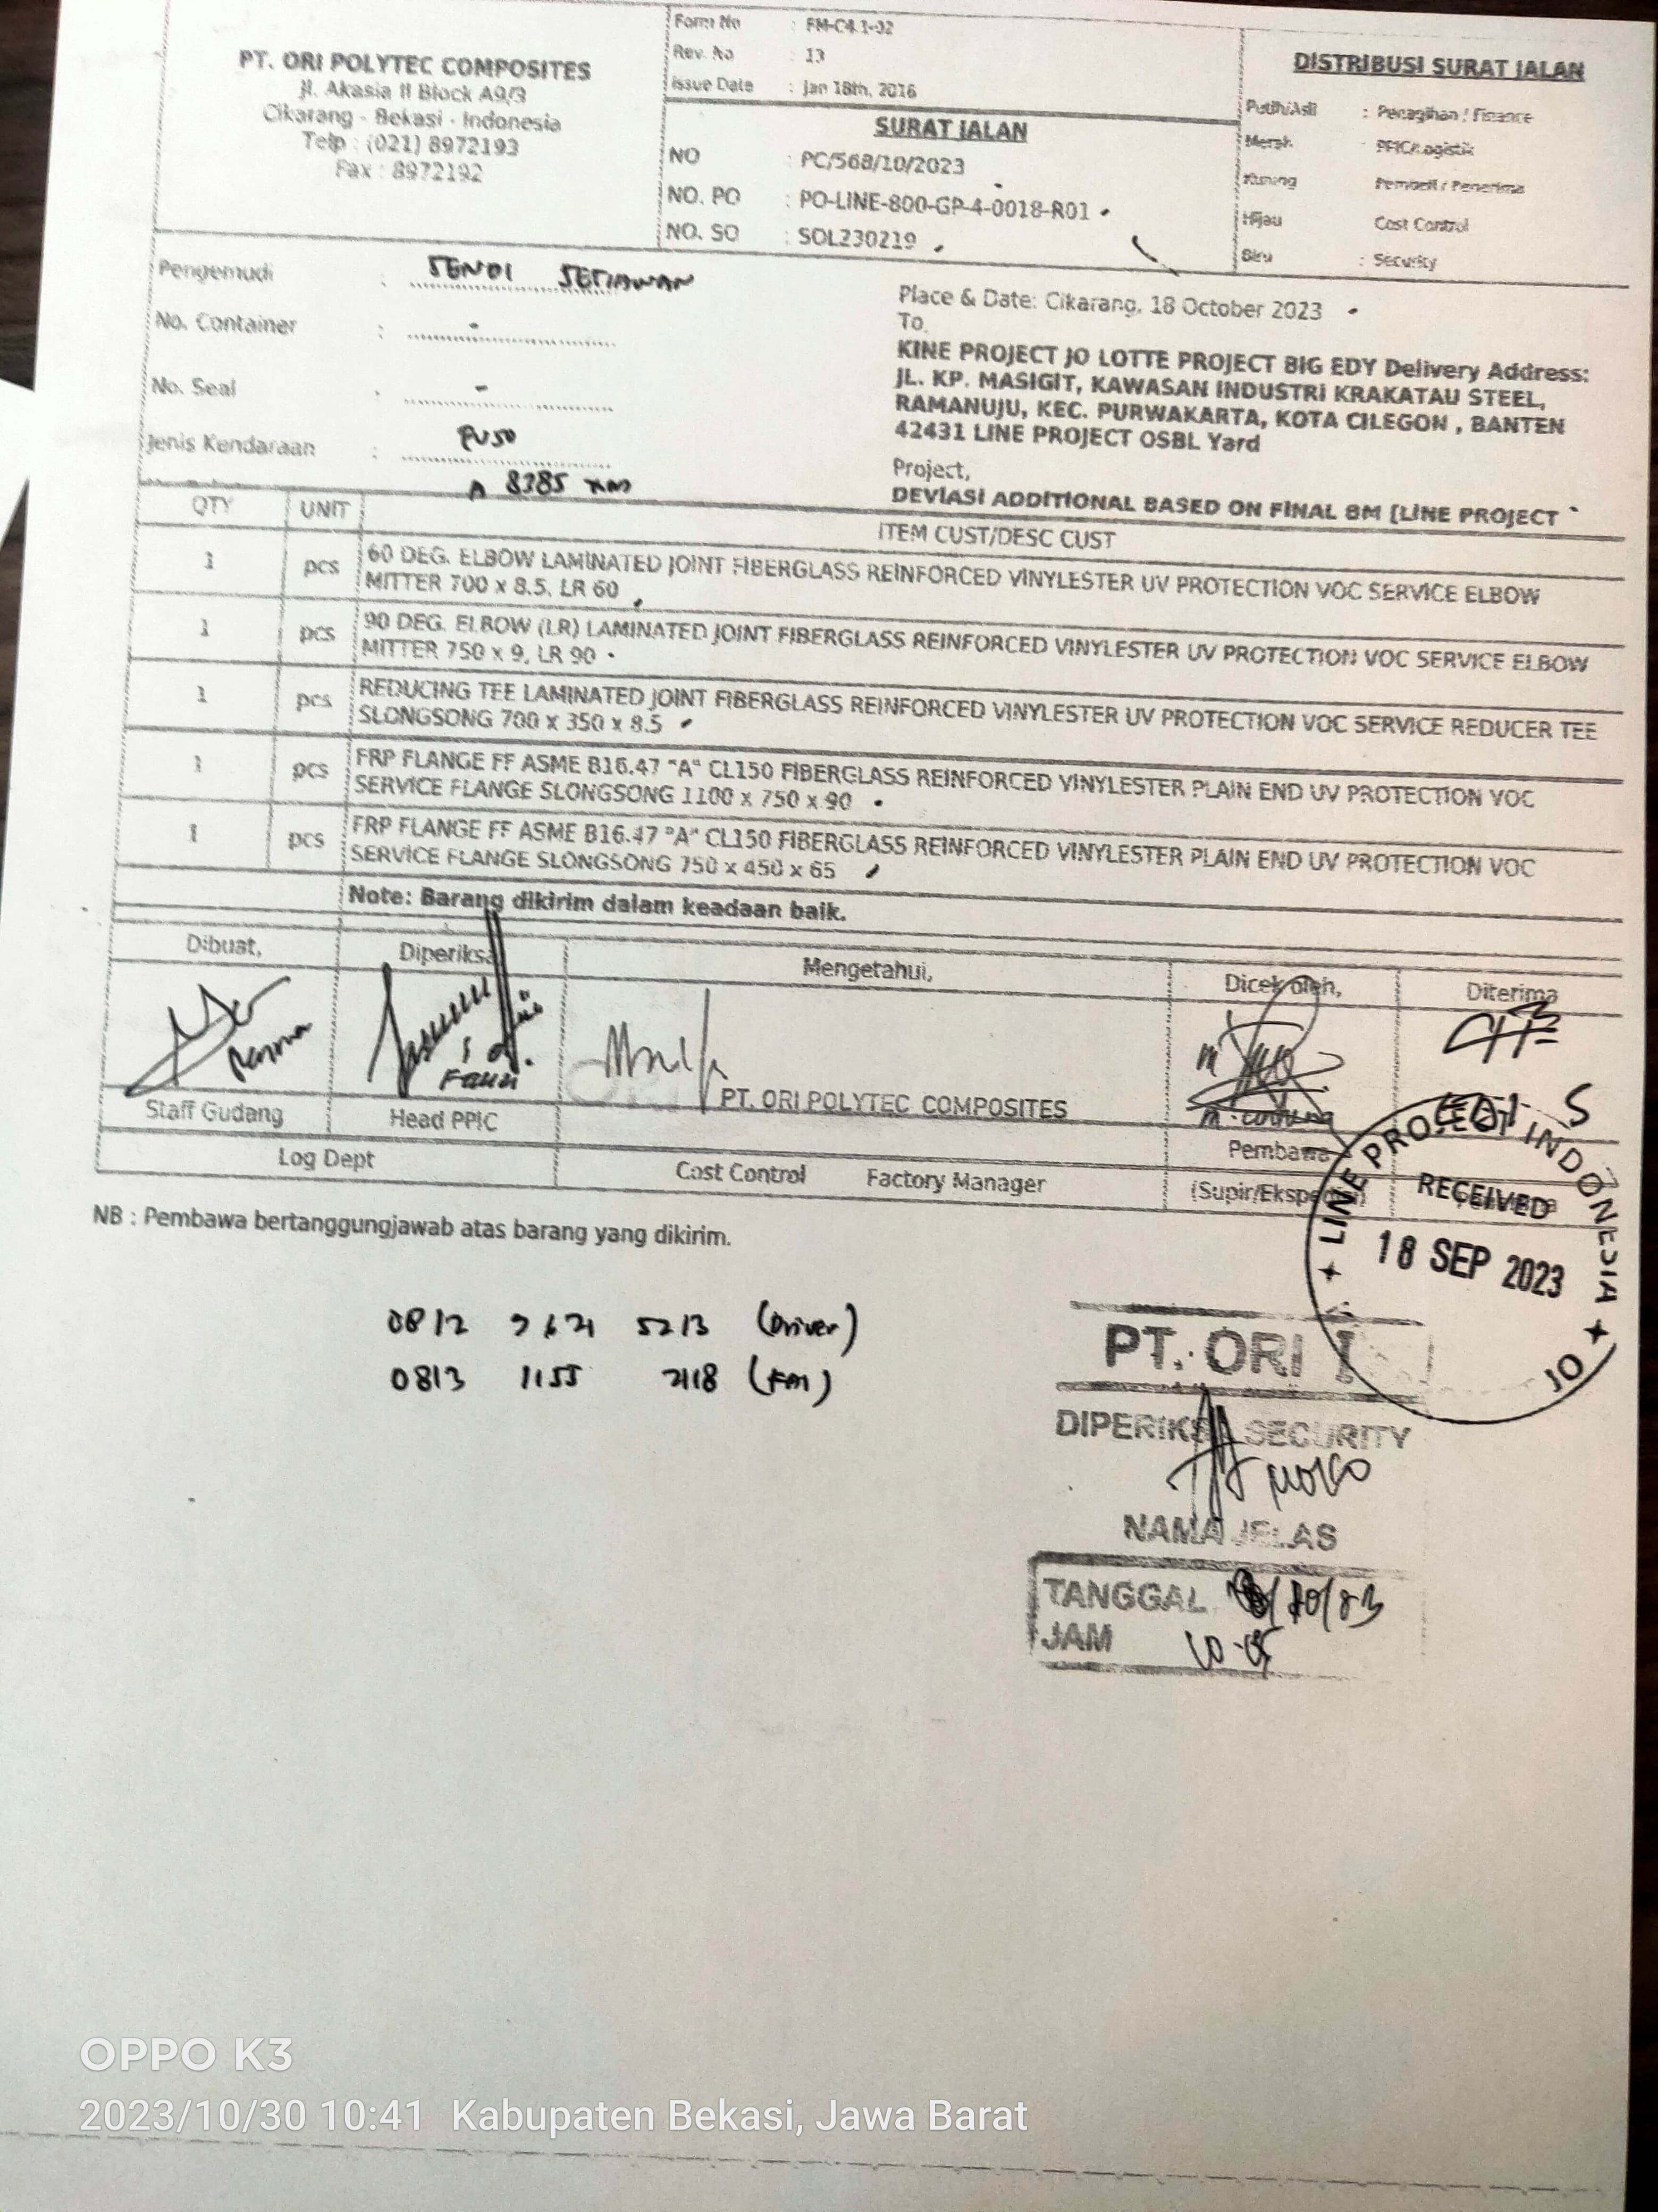 PT. ORI POLYTEC COMPOSITES
Jl. Akasia II Block A9/3
Cikarang - Bekasi - Indonesia
Telp : (021) 8972193
Fax : 8972192
Form No : FM-C4.1-02
Rev. No : 13
Issue Date : Jan 18th, 2016
SURAT JALAN
NO : PC/568/10/2023
NO. PO : PO-LINE-800-GP-4-0018-R01
NO. SO : SOL230219
DISTRIBUSI SURAT JALAN
Putih/Asli : Penagihan / Finance
Merah PPIC/Logistik
Kuning Pembeli / Penerima
Hijau Cost Control
Biru : Security
Pengemudi : SENDI SETIAWAN
No. Container : -
No. Seal : -
Jenis Kendaraan : FUSO
A 8385
Place & Date: Cikarang, 18 October 2023
To.
KINE PROJECT JO LOTTE PROJECT BIG EDY Delivery Address:
JL. KP. MASIGIT, KAWASAN INDUSTRI KRAKATAU STEEL,
RAMANUJU, KEC. PURWAKARTA, KOTA CILEGON , BANTEN
42431 LINE PROJECT OSBL Yard
Project,
DEVIASI ADDITIONAL BASED ON FINAL BM [LINE PROJECT
QTY UNIT ITEM CUST/DESC CUST
1 pcs 60 DEG. ELBOW LAMINATED JOINT FIBERGLASS REINFORCED VINYLESTER UV PROTECTION VOC SERVICE ELBOW
MITTER 700 x 8.5, LR 60
1 pcs 90 DEG. ELBOW (LR) LAMINATED JOINT FIBERGLASS REINFORCED VINYLESTER UV PROTECTION VOC SERVICE ELBOW
MITTER 750 x 9, LR 90
1 pcs REDUCING TEE LAMINATED JOINT FIBERGLASS REINFORCED VINYLESTER UV PROTECTION VOC SERVICE REDUCER TEE
SLONGSONG 700 x 350 x 8.5
1 pcs FRP FLANGE FF ASME B16.47 "A" CL150 FIBERGLASS REINFORCED VINYLESTER PLAIN END UV PROTECTION VOC
SERVICE FLANGE SLONGSONG 1100 x 750 x 90
1 pcs FRP FLANGE FF ASME B16.47 "A" CL150 FIBERGLASS REINFORCED VINYLESTER PLAIN END UV PROTECTION VOC
SERVICE FLANGE SLONGSONG 750 x 450 x 65
Note: Barang dikirim dalam keadaan baik.
Dibuat, Diperiksa Mengetahui, Dicek oleh, Diterima
Fauzi
PT. ORI POLYTEC COMPOSITES
Staff Gudang Head PPIC Pembawa
Log Dept Cost Control Factory Manager (Supir/Ekspedisi)
NB : Pembawa bertanggungjawab atas barang yang dikirim.
LINE PROJECT INDONESIA JO
RECEIVED
18 SEP 2023
5213 (Driver)
0813 1155 2118
PT. ORI
DIPERIKSA SECURITY
NAMA JELAS
TANGGAL
JAM
OPPO K3
2023/10/30 10:41 Kabupaten Bekasi, Jawa Barat